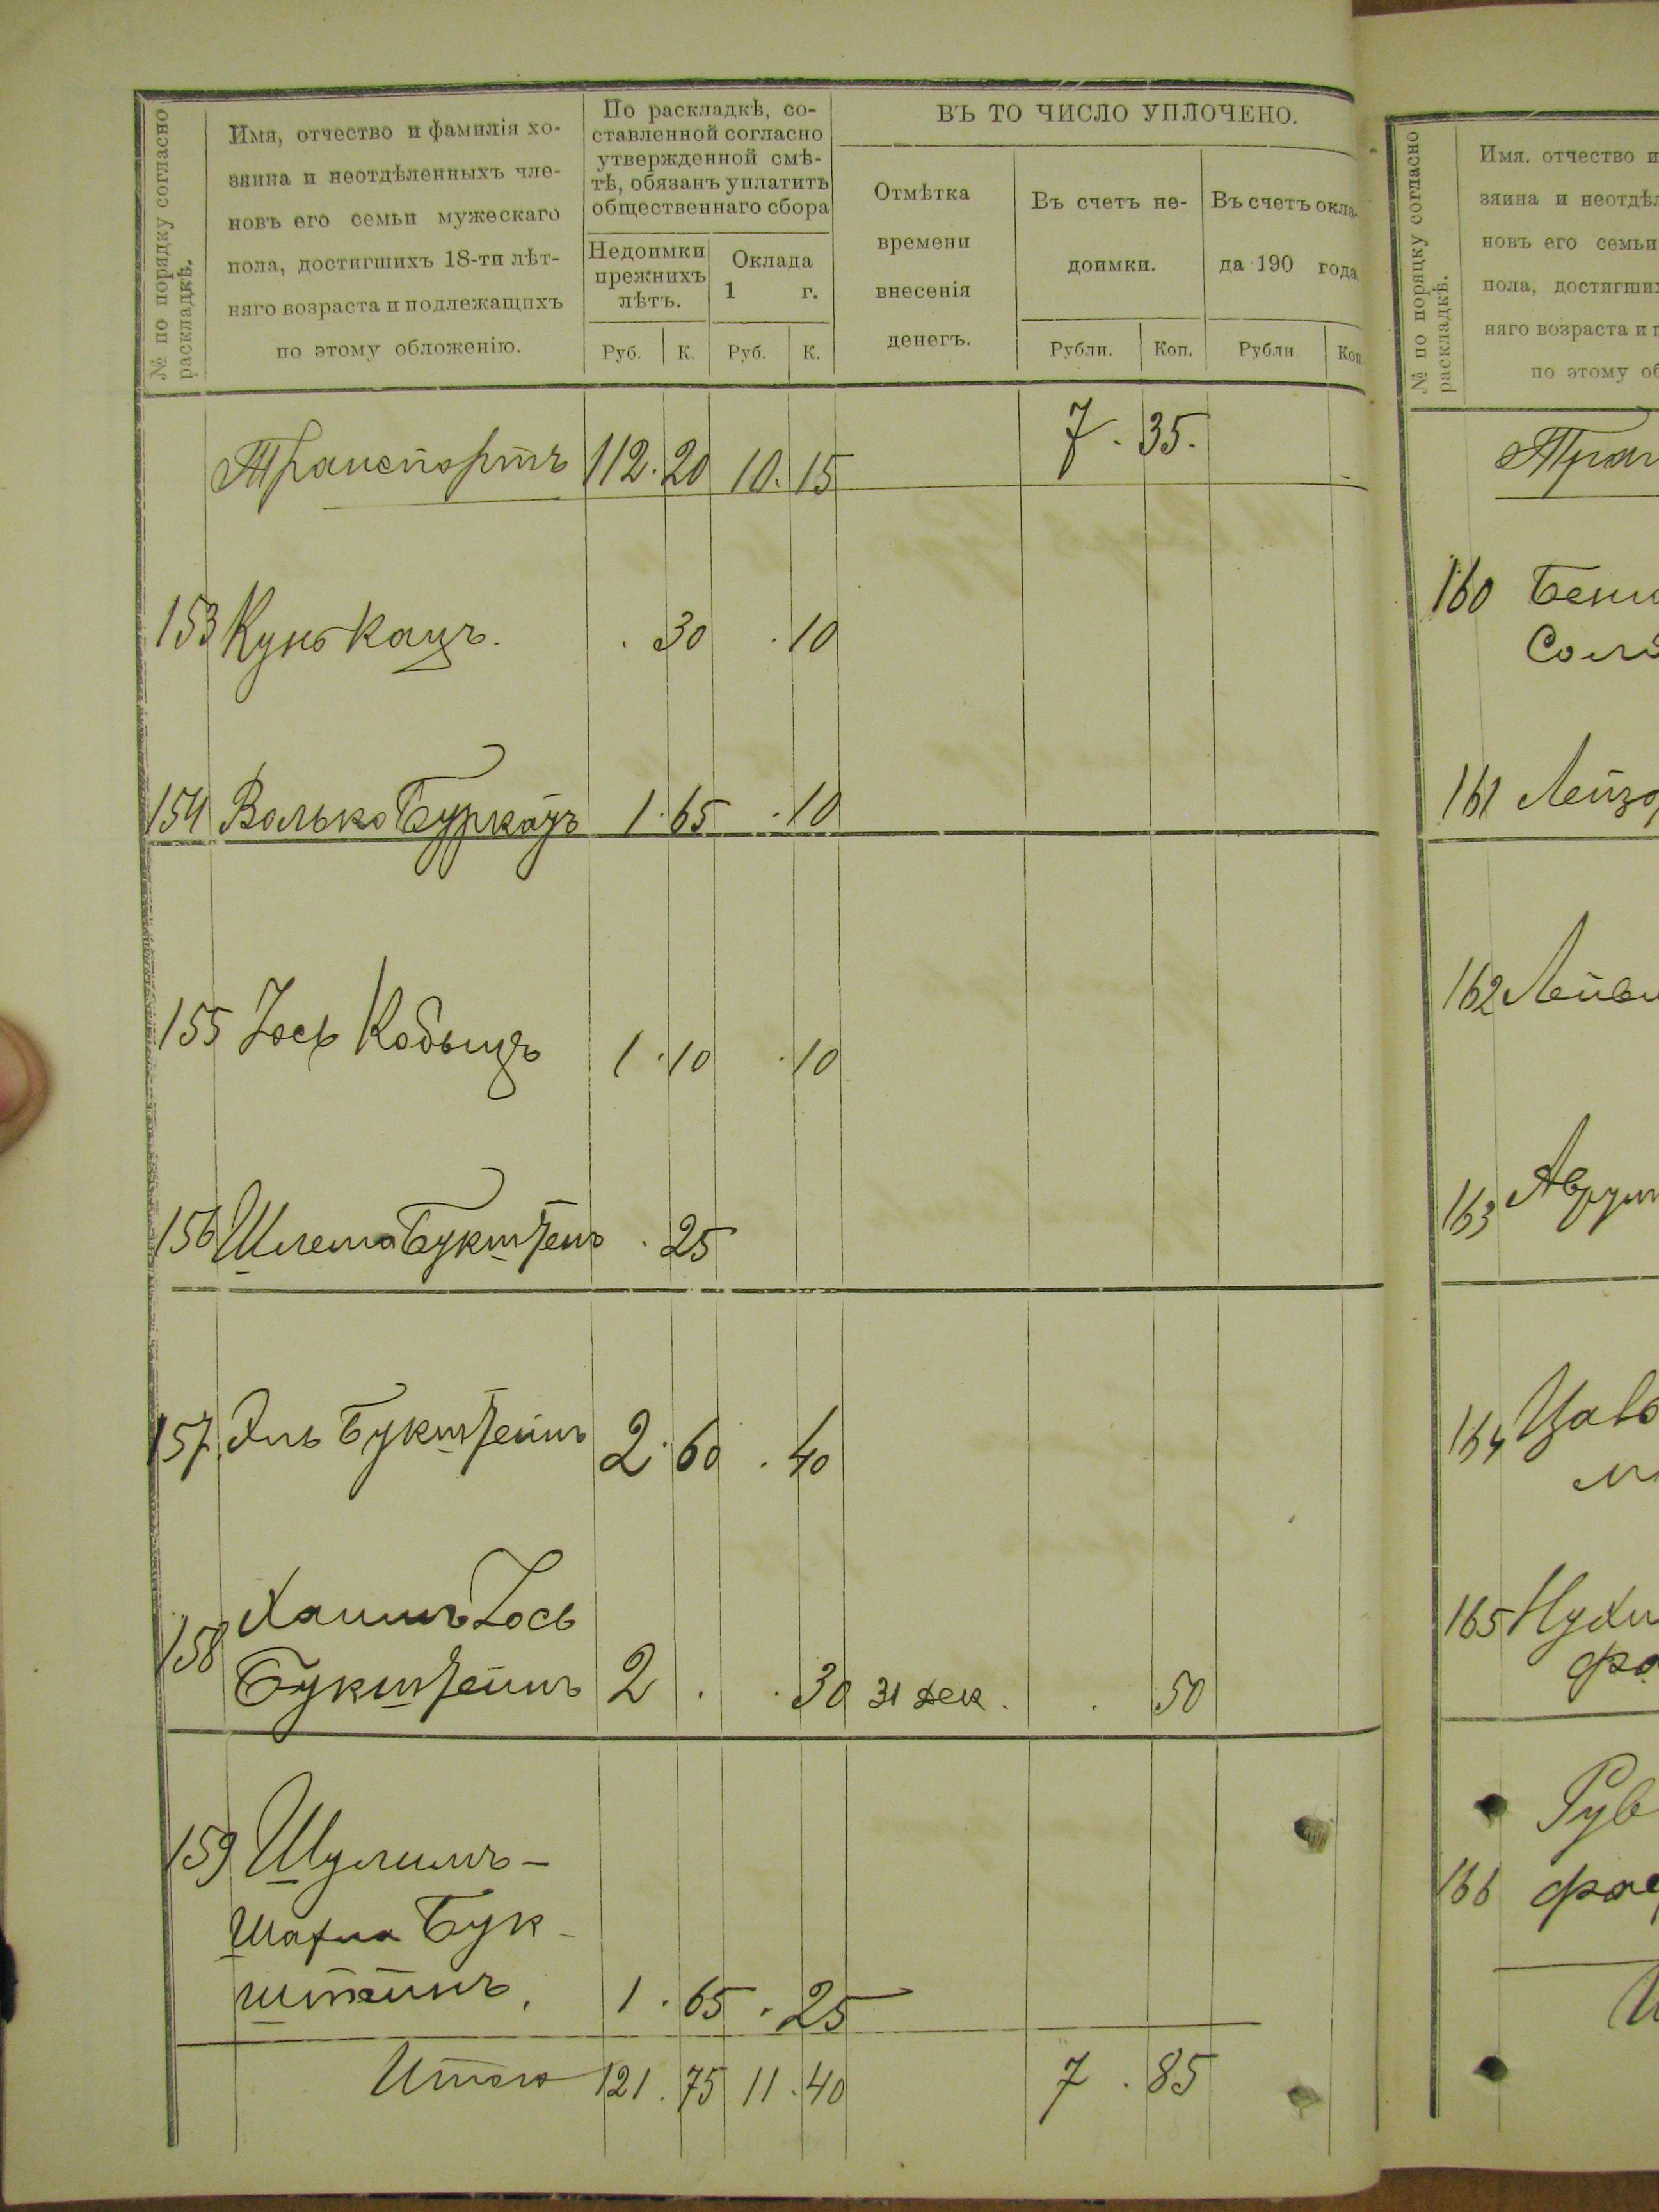 № по порядку согласно
раскладкѣ.
Имя, отчество и фамилія хо-
зяина и неотдѣленныхъ чле-
новъ его семьи мужескаго
пола, достигшихъ 18-ти лѣт-
няго возраста и подлежащихъ
по этому обложенію.
По раскладкѣ, со-
ставленной согласно
утвержденной смѣ-
тѣ, обязанъ уплатить
общественнаго сбора
Недоимки
прежнихъ
лѣтъ.
Оклада
1 г.
Руб. К. Руб. К.
ВЪ ТО ЧИСЛО УПЛОЧЕНО.
Отмѣтка
времени
внесенія
денегъ.
Въ счетъ не-
доимки.
Рубли. Коп.
Въ счетъ окла-
да 190 года
Рубли Коп
Транспортъ 112. 20 10. 15 7. 35.
153 Куна Кацъ. . 30 . 10
154 Волько Буркацъ 1. 65 . 10
155 Іось Кобыцъ 1. 10 . 10
156 Шлема Букштейнъ . 25
157. Эль Букштейнъ 2. 60 . 40
158 Хаимъ Іось
Букштейнъ 2 . . 30 31 дек. . 50
159 Шулимъ-
Шахна Бук-
штейнъ, 1. 65. 25
Итого 121. 75 11. 40 7. 85
№ по порядку согласно
раскладкѣ.
Имя. отчество и
зяина и неотдѣл
новъ его семьи
пола, достигших
няго возраста и п
по этому об
Тран
160
161 Лейзо
162
163 Аврум
164
165 Нухи
166
Рув